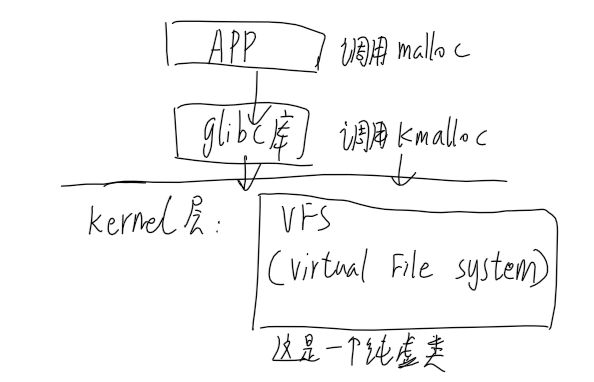 APP 调用malloc
glibc库 调用kmalloc
kernel层:
VFS
(virtual File system)
这是一个纯虚类